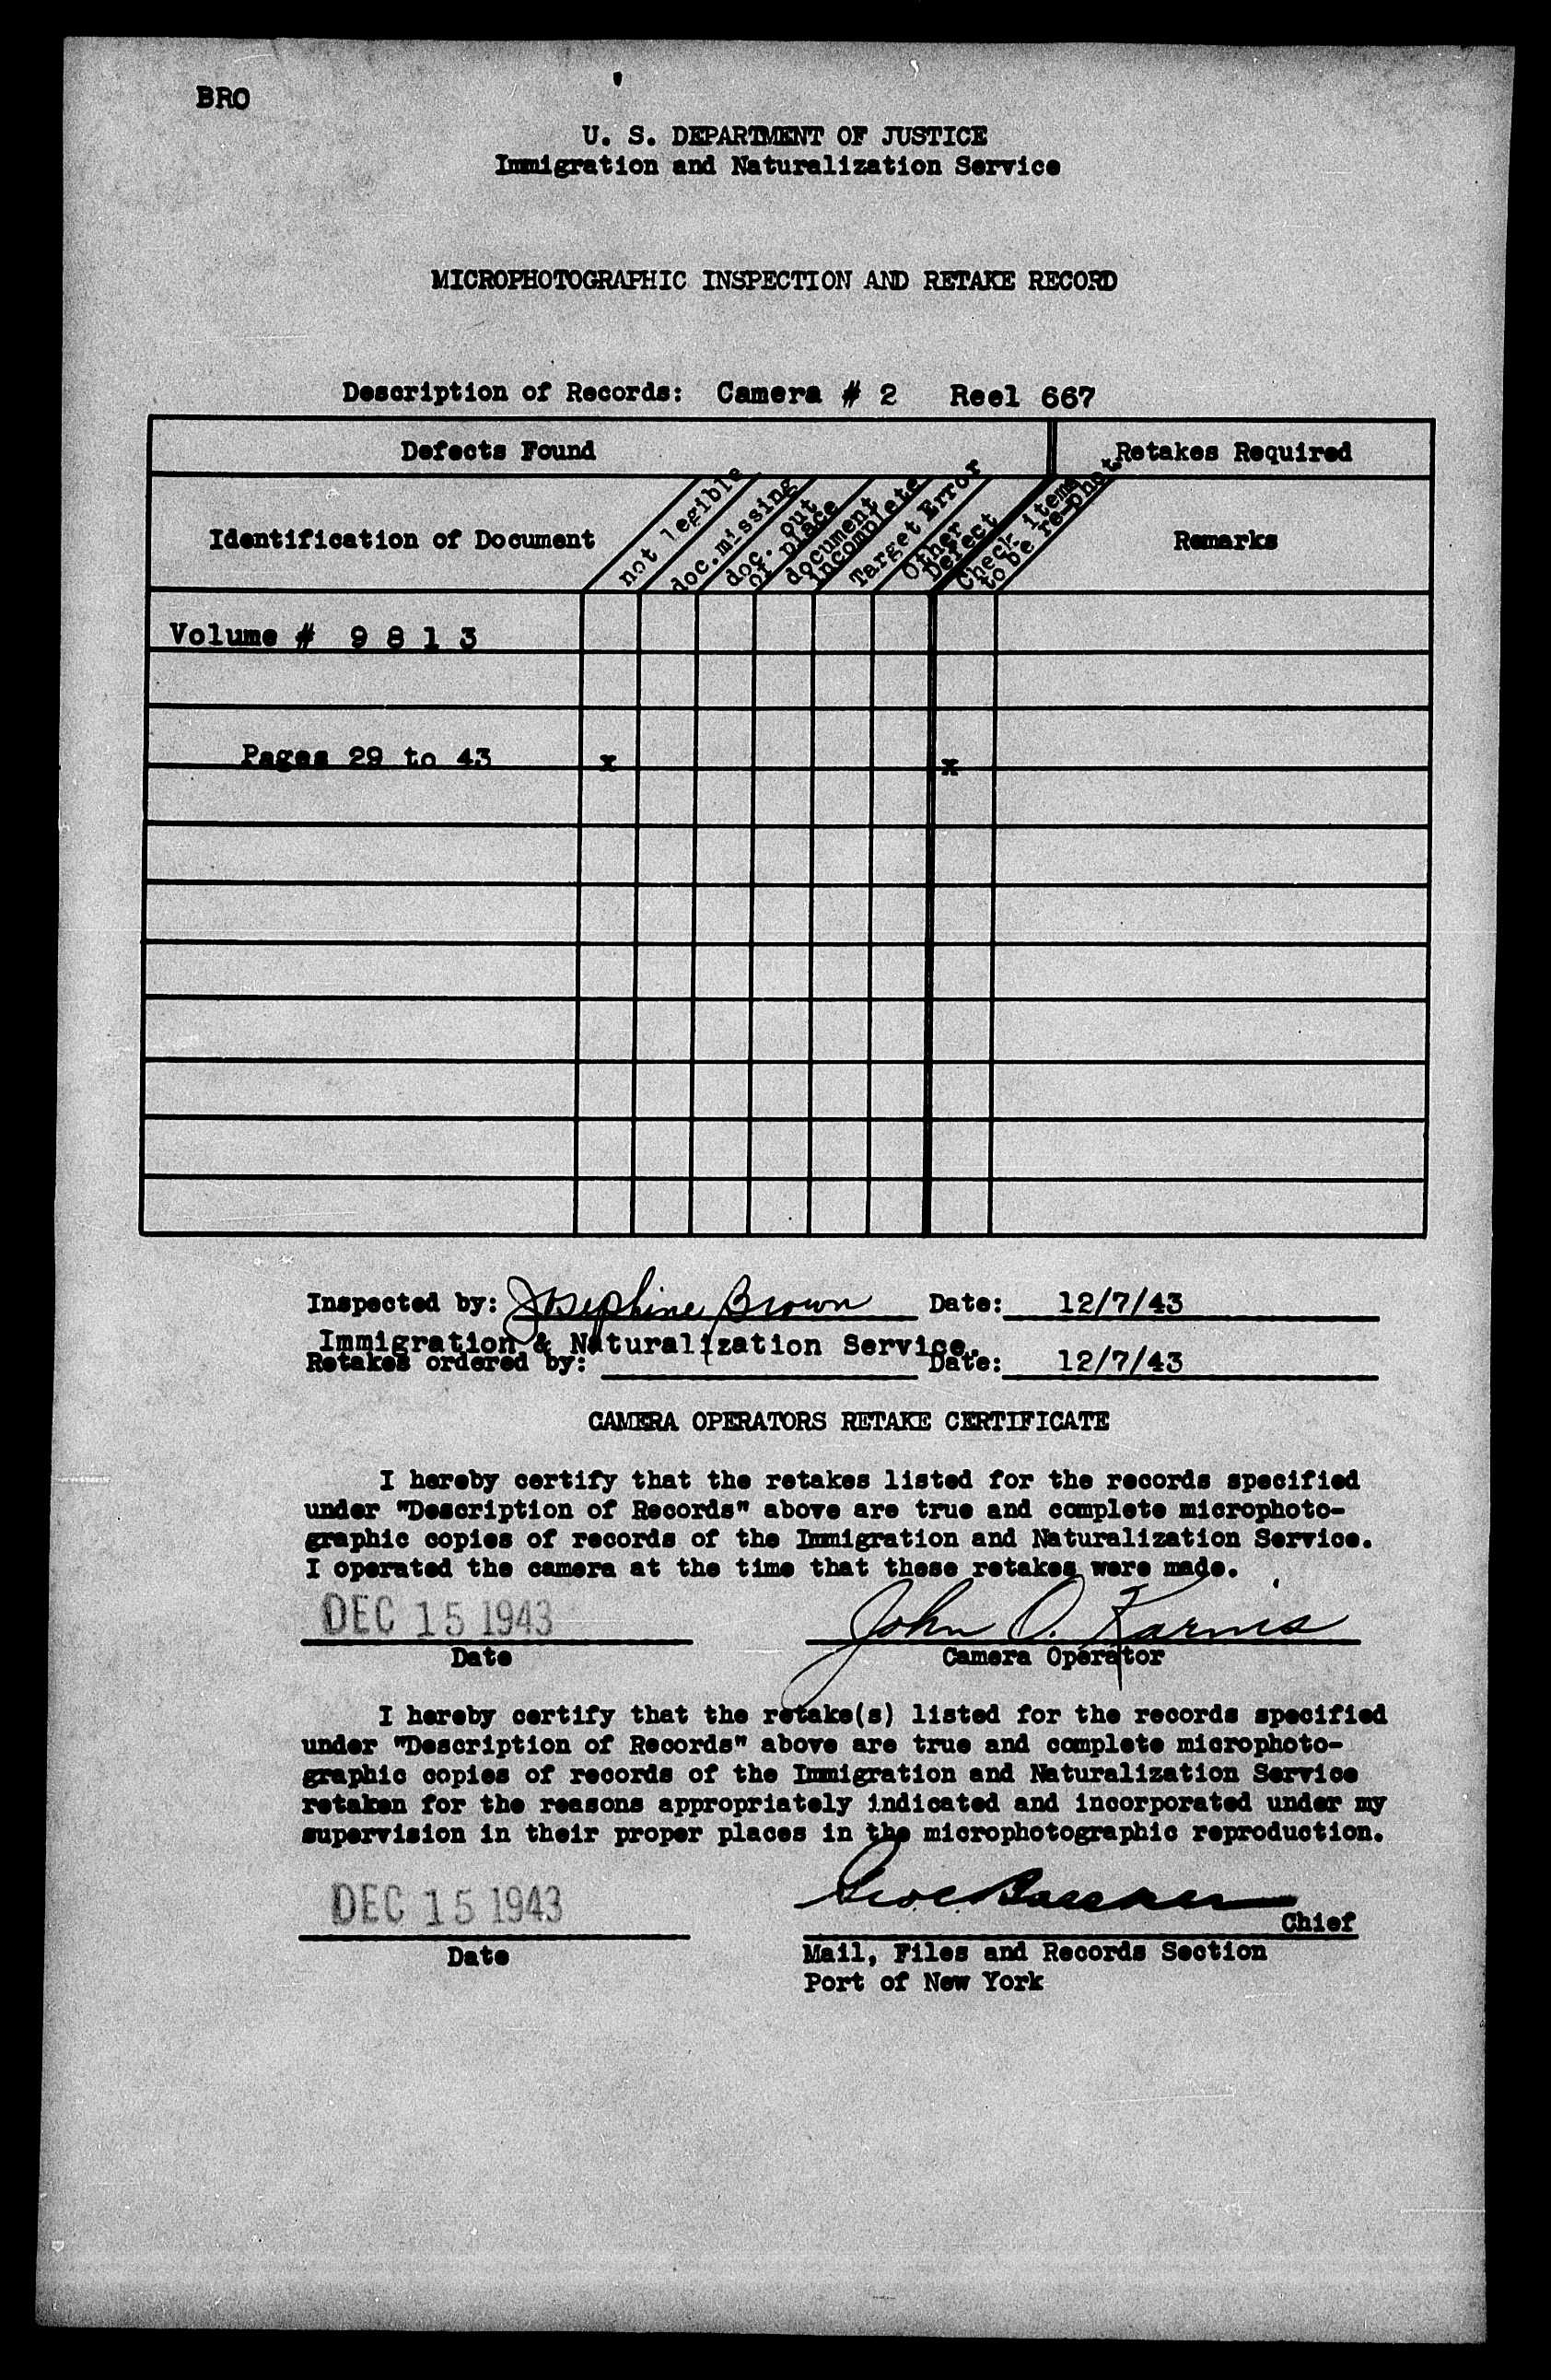 BRO
U. S. DEPARTMENT OF JUSTICE
Immigration and Naturalization Service
MICROPHOTOGRAPHIC INSPECTION AND RETAKE RECORD
Description of Records: Camera # 2 Reel 667
Defects Found Retakes Required
Identification of Document
not legible
doc.missing
doc. out
of place
document
incomplete
Target Error
Other
Defect
Check items
to be re-phot.
Remarks
Volume # 9 8 1 3
Pages 29 to 43 x x
Inspected by: Josephine Brown Date: 12/7/43
Immigration & Naturalization Service.
Retakes ordered by: Date: 12/7/43
CAMERA OPERATORS RETAKE CERTIFICATE
I hereby certify that the retakes listed for the records specified
under "Description of Records" above are true and complete microphoto-
graphic copies of records of the Immigration and Naturalization Service.
I operated the camera at the time that these retakes were made.
DEC 15 1943 John O.
Date Camera Operator
I hereby certify that the retake(s) listed for the records specified
under "Description of Records" above are true and complete microphoto-
graphic copies of records of the Immigration and Naturalization Service
retaken for the reasons appropriately indicated and incorporated under my
supervision in their proper places in the microphotographic reproduction.
DEC 15 1943
Chief
Date Mail, Files and Records Section
Port of New York